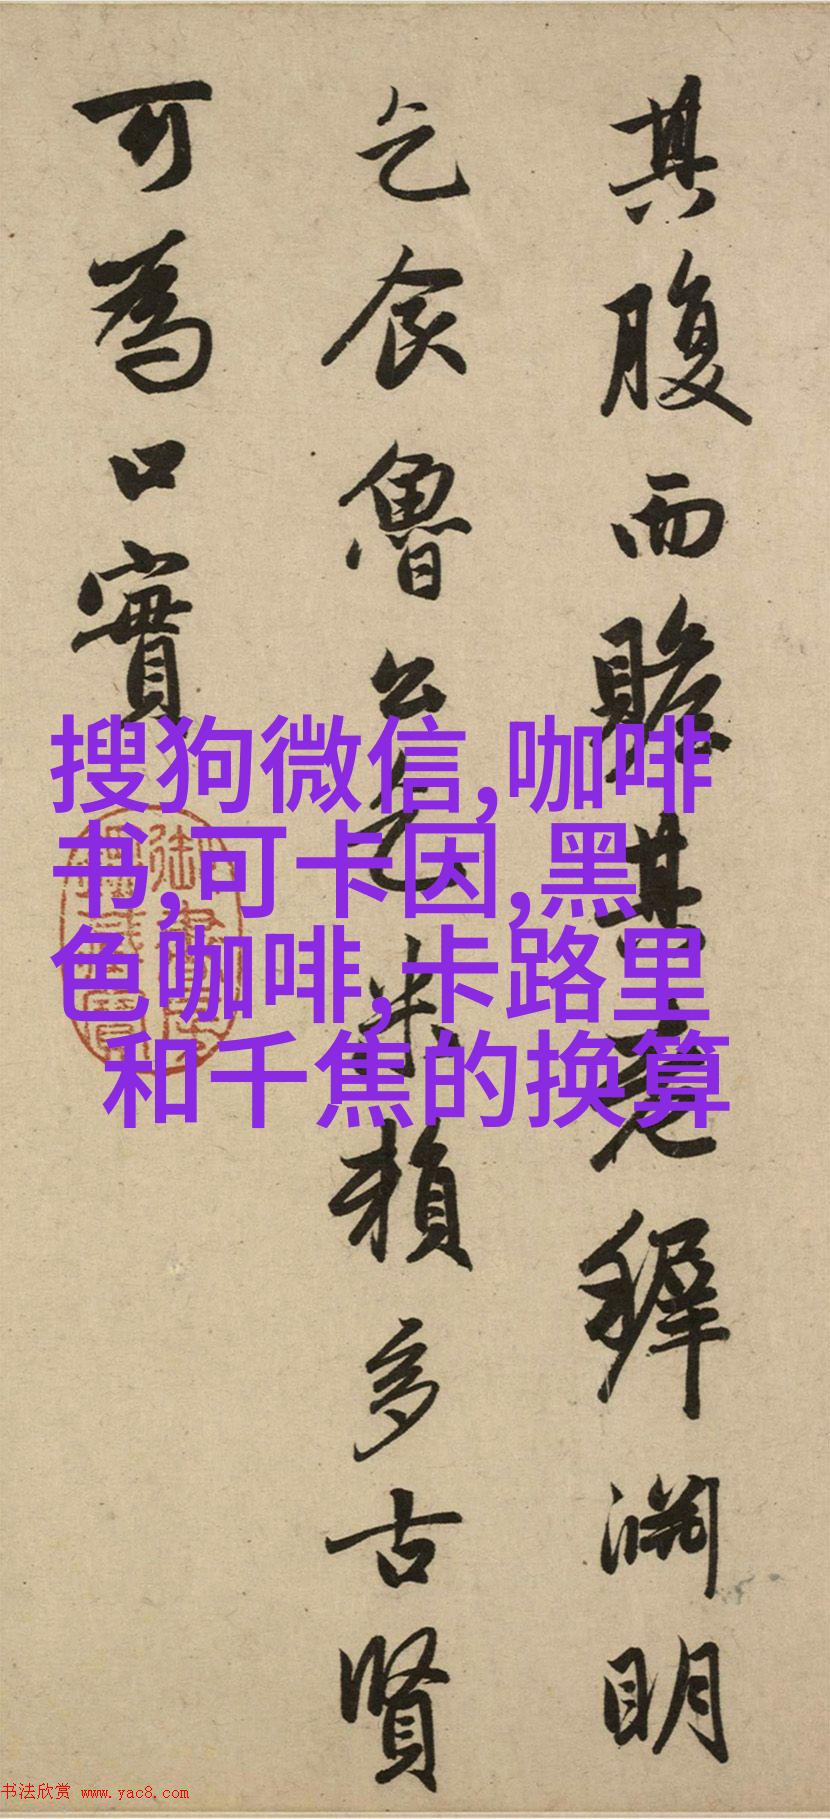 其腹而贍其老稺淵明
乞食魯公乞米賴多古賢
可為口實
搜狗微信,咖啡
书,可卡因,黑
色咖啡,卡路里
和千焦的换算
书法欣赏 www.yac8.com